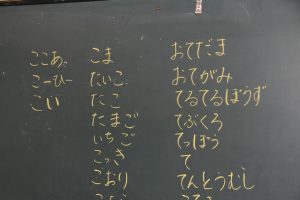 おてだま
おてがみ
てるてるぼうず
てぶくろ
てっぽう
て
てんとうむし
こま
たいこ
たこ
たまご
いちご
こっき
こおり
ここあ
こーひー
こい